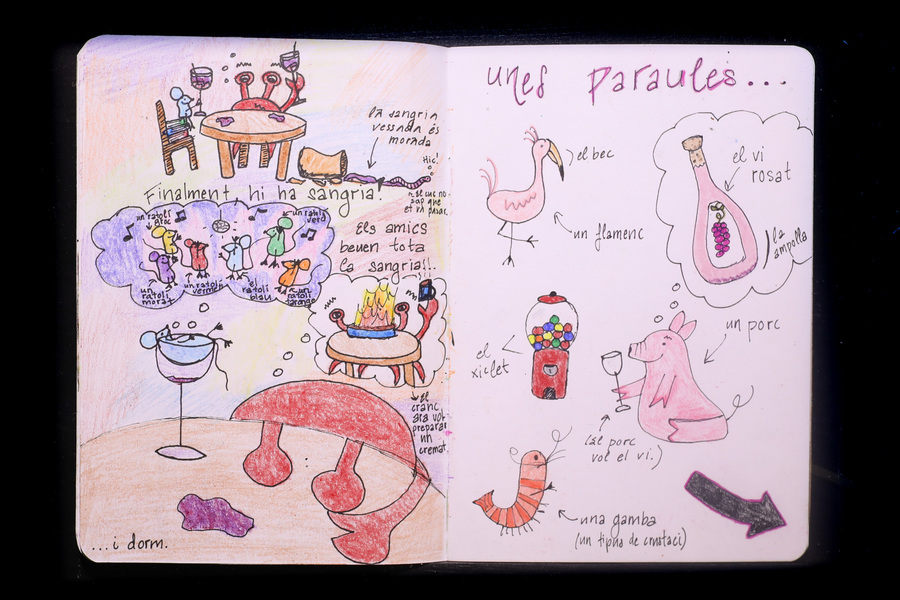 la sangria
vessada és
morada
Hic!
Finalment, hi ha sangria!
un ratolí
groc
un ratolí
verd
un
ratolí
morat
un ratolí
vermell
el
ratolí
blau
un
ratolí
taronja
Els amics
beuen tota
la sangria!..
el
cranc
ara vol
preparar
un
cremat.
...i dorm.
unes paraules...
el bec
un flamenc
el vi
rosat
la
ampolla
el
xiclet
un porc
(al porc
vol el vi.)
una gamba
(un tipus de crustaci)